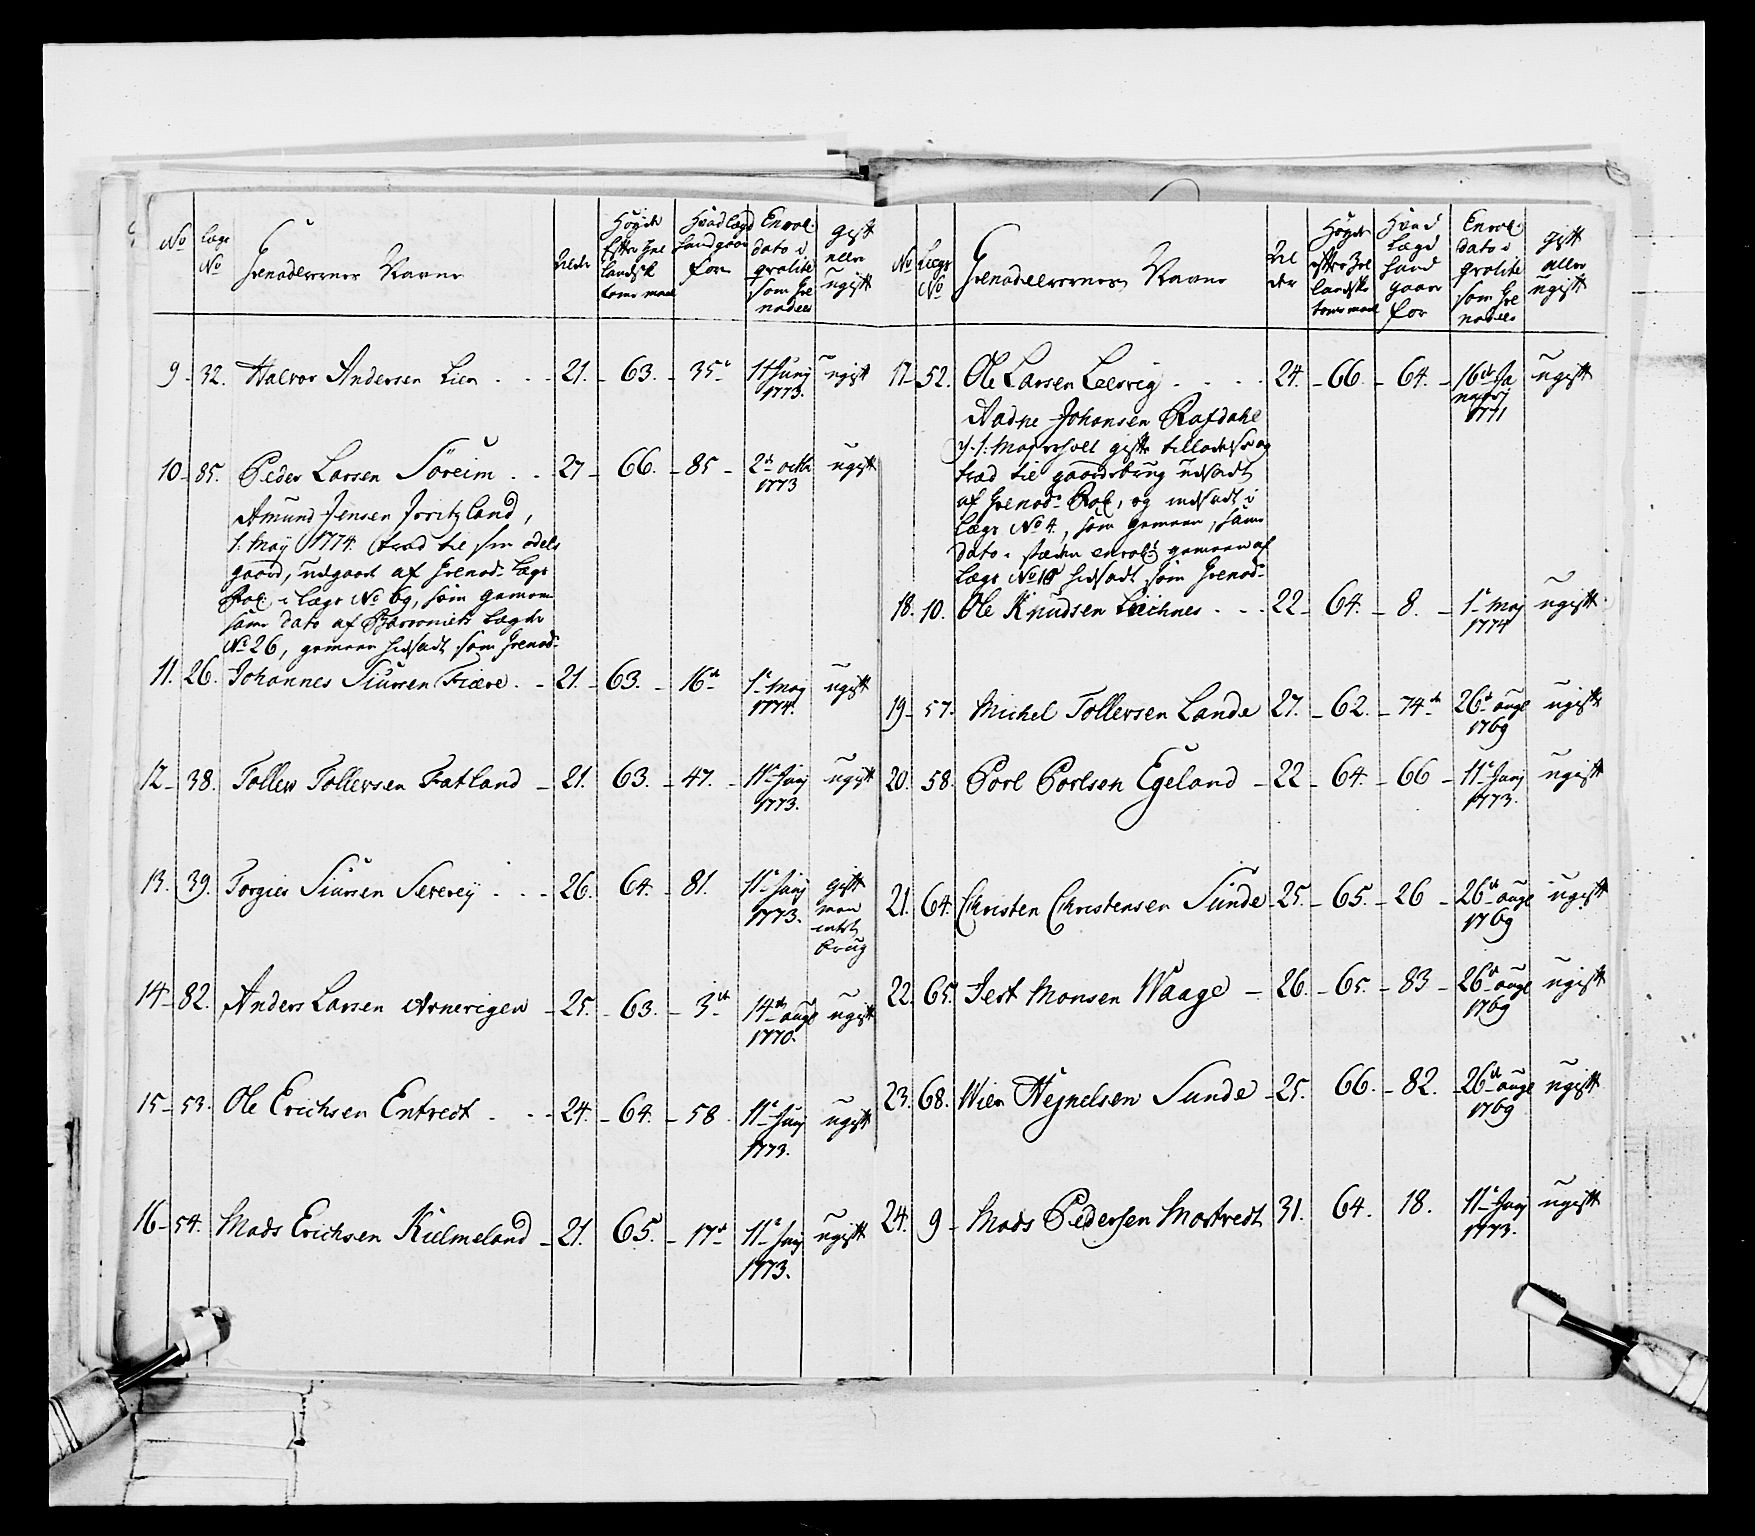 No
Lægs No
Grenadeerernes Navne
Alder
Høyde efter Selandsk tome maal
Hvad Lægd hand gaar for
Enrol. dato i qvalité som Grenadeer
gift eller ugift
9 - 32. Halvor Andersen Lien . . . 21. - 63. - 35te 11 Junj 1773. ugift
10 - 85. Peder Larsen Söreim . . 27 - 66. - 85 - 2de octb 1773 ugift
Amund Jensen
1. Maÿ 1774. trad til sin odels
gaard, udgaaet af Grenad. Lægs
Rol. i Lægs No 69, som gemeen
same dato af Baroniets Lægds
No 26, gemeen indsadt som Grenad.
11. 26. Johannes Siursen Fiære . - 21. - 63. - 16de 1te May 1774. ugift
12 - 38. Tollew Tollevsen Fratland - 21. 63. - 47. - 11te Junj 1773. ugift
13. 39. Torgier Siursen Severeÿ . . - 26. 64. - 81. 11te Junj 1773. gift men intet brug
14 - 82. Anders Larsen Arnerigen - 25. - 63. - 3de 14de aug 1770. ugift
15 - 53. Ole Erichsen Entvedt . . - 24. - 64. - 58. 11te Junj 1773. ugift
16 - 54. Mads Erichsen Kielmeland - 21. 65. - 17de 11te Junj 1773. ugift
No
Lægs No
Grenadeerernes Navne
Alder
Høyde efter Selandske tome maal
Hvad Lægd hand gaar for
Enrol. dato i qvalité som Grenadeer
gift eller ugift
17 - 52. Ole Larsen Leervig . . . . 24. - 66. - 64. - 16de Januarj 1771 ugift
Aadne Johansen Rafdahl
trad til gaardsbrug udsadt
af Grenad. Rol, og indsadt i
Lægs No 4, som gemeen, samme
dato i stæden enrol. gemeen af
Lægs No 10 indsadt som Grenad.
18. 10. Ole Knudsen Liechnes . . - 22 - 64. - 8. - 1te Maj 1774 ugift
19 - 57. Michel Tollevsen Lande 27. - 62. - 74de 26de aug 1769 ugift
20. 58. Porl Porlsen Egeland - 22 - 64. - 66 - 11te Junj 1773. ugift
21. 64. Christen Christensen Sunde - 25. - 65. - 26 - 26de aug 1769 ugift
22. 65. Jest Monsen Waage - 26. - 65. - 83 - 26de aug 1769 ugift
23. 68. Wier Hejnelsen Sunde - 25. 66. - 82. - 26de aug 1769 ugift
24. 9 - Mads Pedersen Mostvedt 31. 64. 18. 11te Junj 1773. ugift